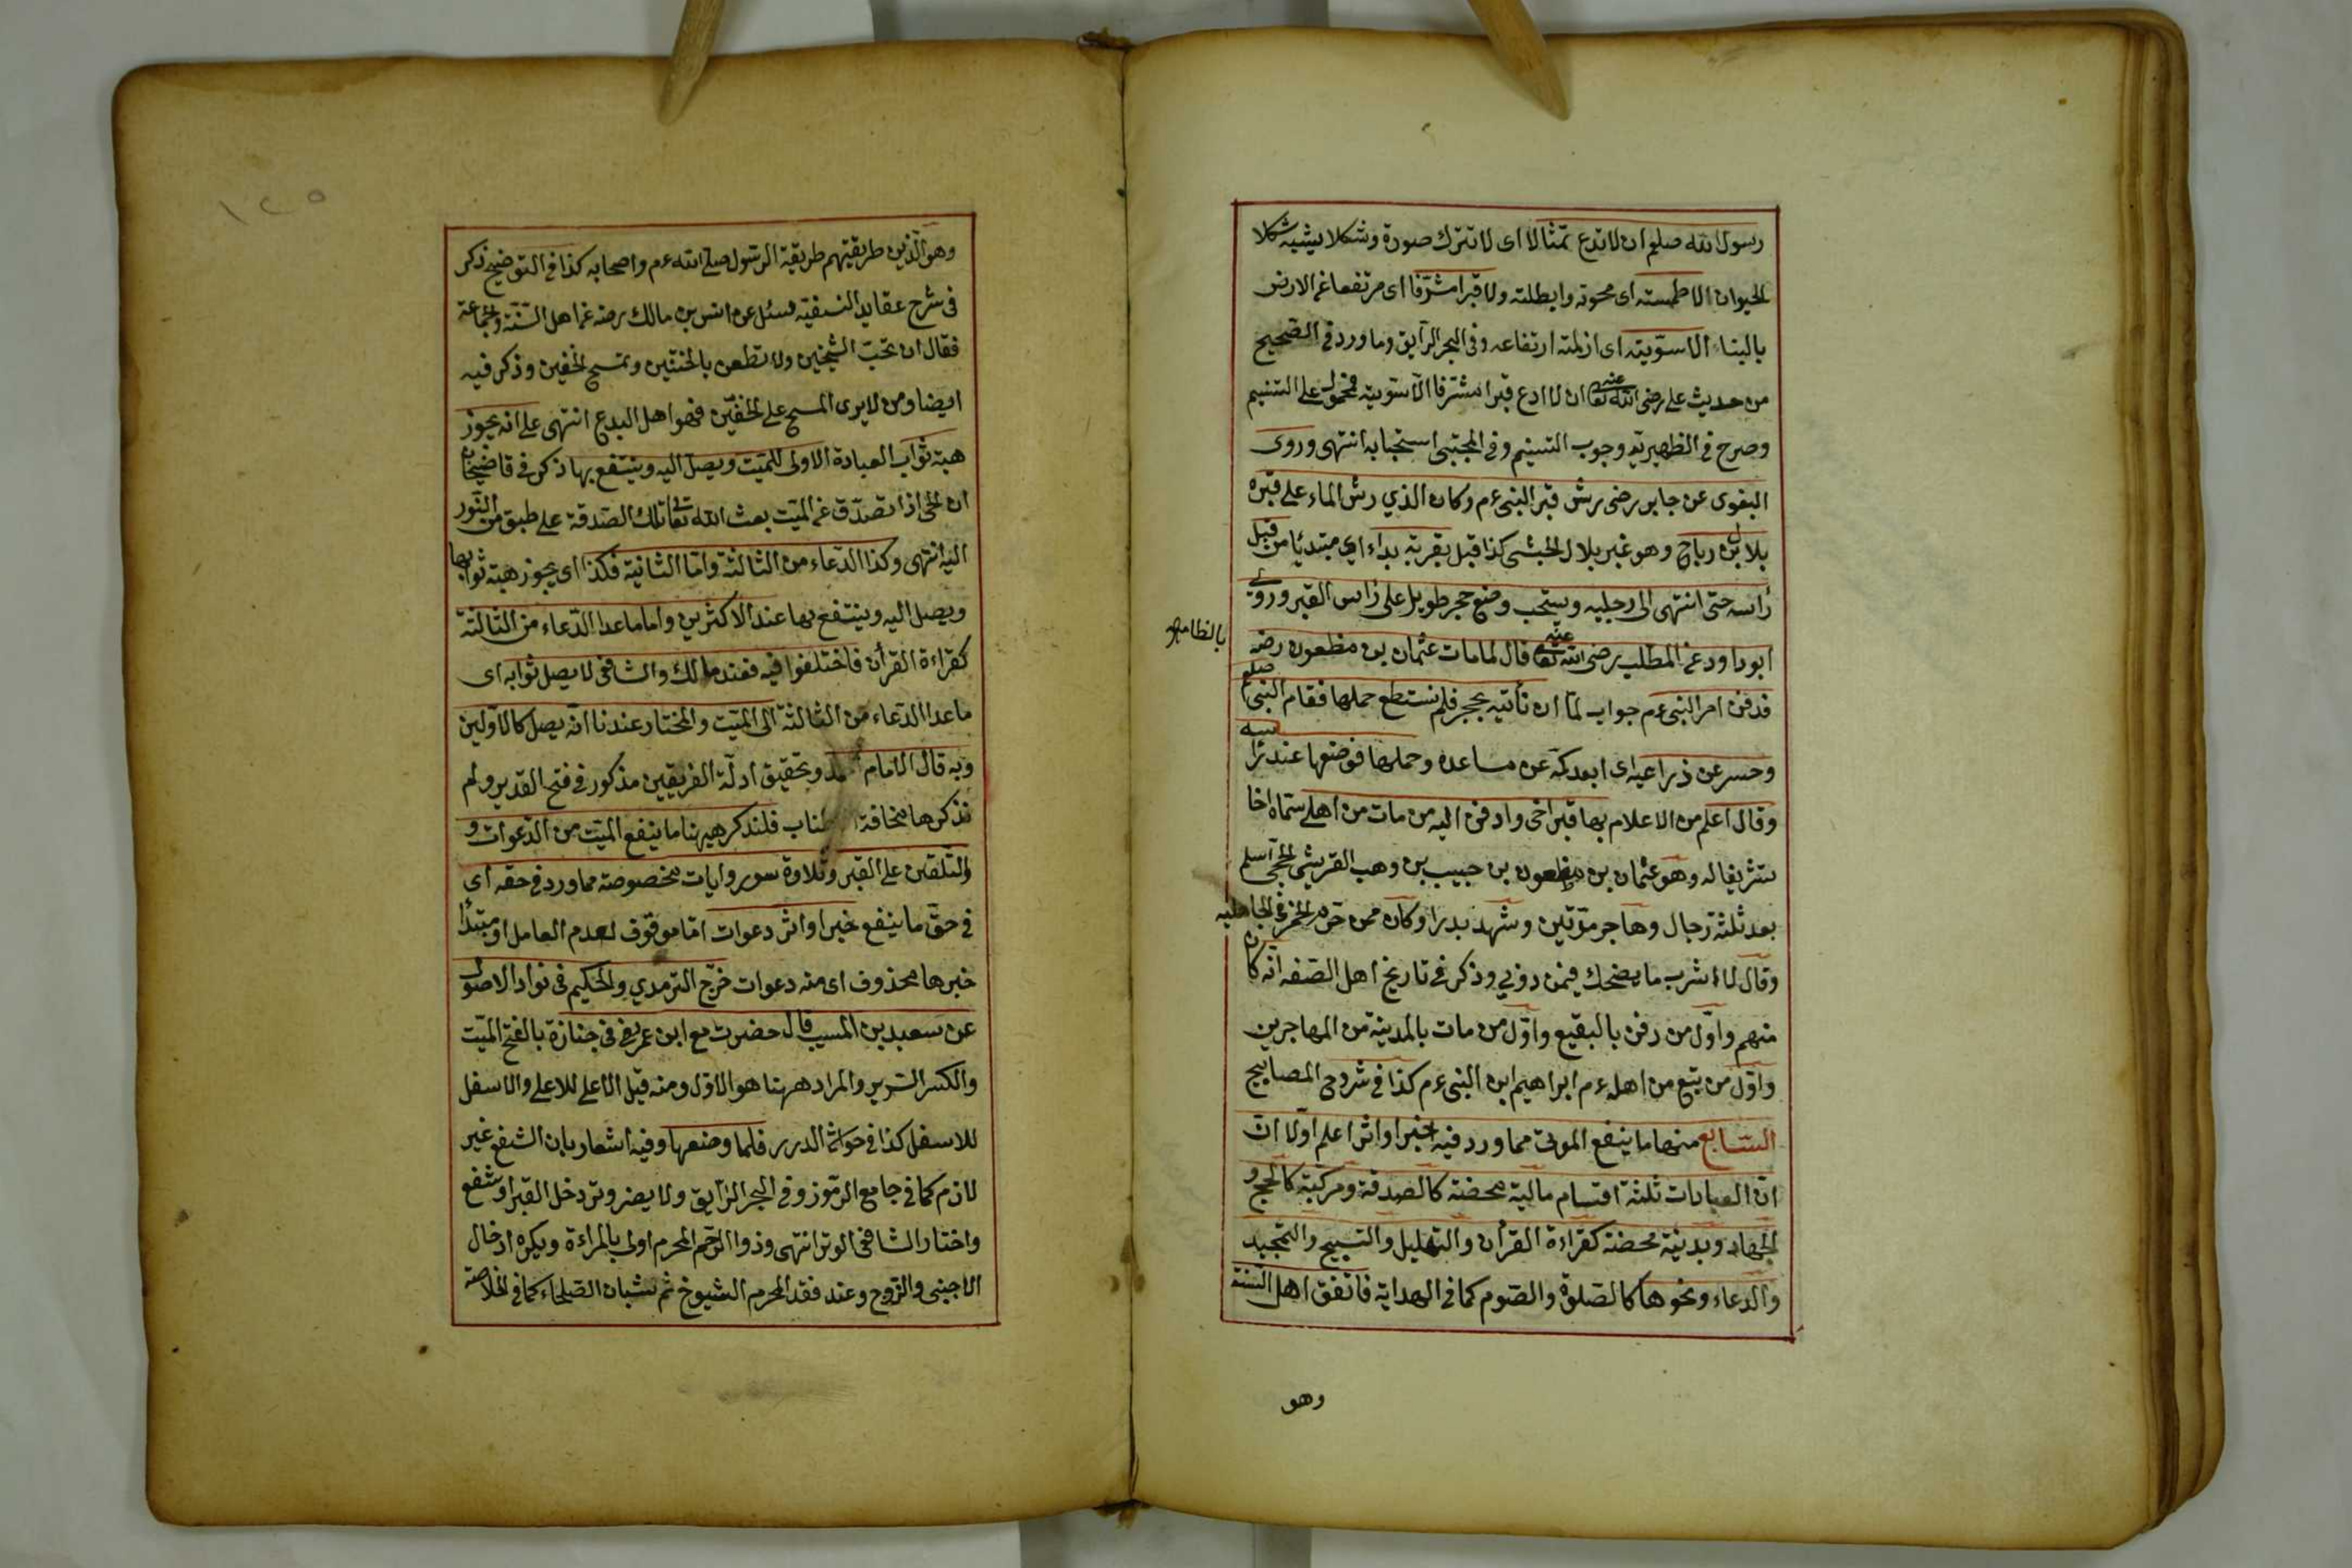 رسول الله صلعم ان لا تدع تمثالا اى لا تترك صورة وشكلا يشبه شكلا
الحيوان الا طمسته اى محوته وابطلته ولا قبرا مشرفا اى مرتفعا عن الارض
بالبناء الا سويته اى ازلمته ارتفاعه وفى البحر الرايق وما ورد فى الصحيح
من حديث على رضى الله تعا عنه ان لا ادع قبرا مشرفا الا سويته فمحمول على التسنيم
وصرح فى الظهيرية وجوب التسنيم وفى المجتبى استحبابه انتهى وروى
البغوى عن جابر رضى رش قبر النبى ءم وكان الذي رش الماء على قبره
بلال بن رباح وهو غير بلال الحبشى كذا قيل بقربة بداء اى مبتدئا من قبل
رأسه حتى انتهى الى رجليه ويستحب وضع حجر طويل على رأس القبر وروى
بالظا
ابو داود عن المطلب رضى الله تعا عنه قال لما مات عثمان بن مظعون رضه
فدفن امر النبى ءم جواب لما ان نأتيه بحجر فلم نستطع حملها فقام النبى صلعم
وحسر عن ذراعيه اى ابعد كمه عن ساعده وحملها فوضعها عند رأسه
وقال اعلم من الاعلام بها قبر اخى وادفن اليه من مات من اهلى سماه اخا
تشريفا له وهو عثمان بن مظعون بن حبيب بن وهب القريشى الجمحى اسلم
بعد ثلثة رجال وهاجر مرتين وشهد بدرا وكان ممن حرم الخمر فى الجاهلية
وقال لا اشرب ما يضحك فيمن دونى وذكر فى تاريخ اهل الصفه انه كان
منهم واول من دفن بالبقيع واول من مات بالمدينة من المهاجرين
واول من تبع من اهله ءم ابراهيم ابن النبى ءم كذا فى شروحى المصابيح
السابع منها ما ينفع الموتى مما ورد فيه خبرا واثرا اعلم اولا ان
ان العبادات ثلثة اقسام مالية محضة كالصدقة ومركبة كالحج و
الجهاد وبدنية محضة كقراءة القرأن والتهليل والتسبيح والتمجيد
والدعاء ونحوها كالصلوة والصوم كما فى الهداية فاتفق اهل السنة
وهو
١٢٥
وهو الذين طريقتهم طريقة الرسول صلى الله ءم واصحابه كذا فى التوضيح ذكر
فى شرح عقايد النسفية سئل عن انس بن مالك رضه عن اهل السنة والجماعة
فقال ان تحب الشيخين ولا تطعن بالختنين وتمسح الخفين وذكر فيه
ايضا ومن لا يرى المسح على الخفين فهو اهل البدع انتهى على انه يجوز
هبة ثواب العبادة الاولى للميت ويصل اليه وينتفع بها ذكر فى قاضيخان
ان الحى اذا تصدق عن الميت بعث الله تعالى تلك الصدقة على طبق من النور
اليه انتهى وكذا الدعاء من الثالثة واما الثانية فكذا اى يجوز هبة ثوابها
ويصل اليه وينتفع بها عند الاكثرين واما ماعدا الدعاء من الثالثة
كقراءة القرأن فاختلفوا فيه فعند مالك والشافعى لا يصل ثوابه اى
ماعدا الدعاء من الثالثة الى الميت والمختار عندنا انه يصل كالاولين
وبه قال الامام احمد وتحقيق ادلة الفريقين مذكور فى فتح القدير ولم
نذكرها مخافة الاطناب فلنذكر ههنا ما ينفع الميت من الدعوات و
والتلقين على القبر وتلاوة سور وايات مخصوصة مما ورد فى حقه اى
فى حق ما ينفع خبرا واثر دعوات اما موقوف لعدم العامل او مبتدا
خبرها محذوف اى منه دعوات خرج الترمدي والحكيم فى نوادر الاصول
عن سعيد بن المسيب قال حضرت مع ابن عمر رض فى جنازة بالفتح الميت
والكسر السرير والمراد ههنا هو الاول ومنه قيل الاعلى للاعلى والاسفل
للاسفل كذا فى حواشى الدرر فلما وضعها وفيه اشعار بان الشفع غير
لازم كما فى جامع الرموز وفى البحر الرايق ولا يضر وتر دخل القبر او شفع
واختار الشافعى الوتر انتهى وذوا الرحم المحرم اولى بالمراءة ويكره ادخال
الاجنبى والزوج وعند فقد المحرم الشيوخ ثم شبان الصلحاء كما فى الخلاصة